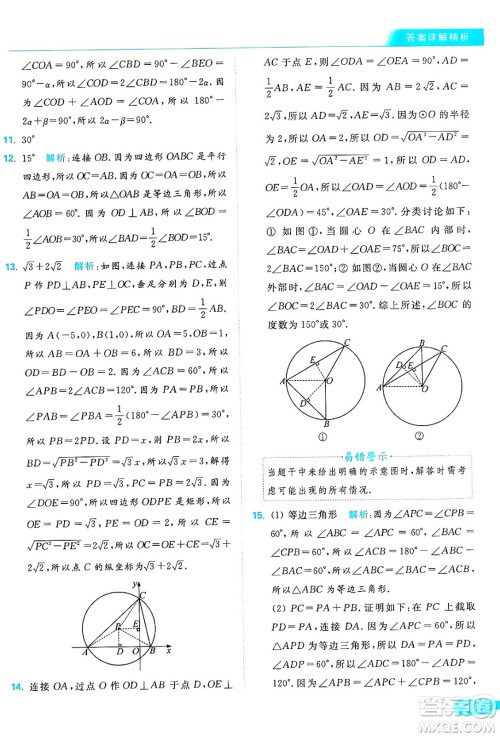 答案详解精析
∠COA=90°,所以∠CBO=90°-∠BEO=90°-α=∠BCD,所以∠COD=2∠CBD=180°-2α,所以∠COD+∠AOD=∠COA=180°-2α+α=90°,所以α=90°.
11. 30°
12. 15° 解析:连接OB.因为四边形OABC是平行四边形,所以OC=AB.因为OA=OB=OC,所以OA=OB=AB,所以△OAB是等边三角形,所以∠AOB=60°.因为OD⊥AB,所以∠BOD=
1/2∠AOB=30°,所以∠BAD=1/2∠BOD=15°.
13. √3+2√2 解析:如图,连接PA,PB,PC,过点P作PD⊥AB,PE⊥OC,垂足分别为D,E,所以∠PDO=∠PEO=∠PEC=90°,AD=BD=1/2AB.
因为A(-5,0),B(1,0),所以OA=5,OB=1,所以AB=OA+OB=6,所以BD=3,所以OD=BD-OB=2.因为∠ACB=60°,所以∠APB=2∠ACB=120°.因为PA=PB,所以∠PAB=∠PBA=1/2(180°-∠APB)=30°,所以PB=2PD.设PD=x,则PB=2x,所以BD=√(PB²-PD²)=√3x=3,所以x=√3,所以PD=√3,PC=PB=2√3.因为∠DOE=90°,所以四边形ODPE是矩形,所以PE=OD=2,OE=PD=√3,所以CE=√(PC²-PE²)=2√2,所以OC=OE+CE=√3+2√2,所以点C的纵坐标为√3+2√2.
y
C
P
E
A
D
O
B
x
14. 连接OA,过点O作OD⊥AB于点D,OE⊥
AC于点E,所以∠ODA=∠OEA=90°,AD=
1/2AB,AE=1/2AC.因为AB=2√2,AC=2√3,所以AD=√2,AE=√3.因为⊙O的半径为2,所以OA=2,所以OD=√(OA²-AD²)=√2,OE=√(OA²-AE²)=1,所以AD=OD,OE=1/2OA,所以∠OAD=1/2(180°-∠ODA)=45°,∠OAE=30°.分类讨论如下:①如图①,当圆心O在∠BAC内部时,∠BAC=∠OAD+∠OAE=75°,所以∠BOC=2∠BAC=150°;②如图②,当圆心O在∠BAC外部时,∠BAC=∠OAD-∠OAE=15°,所以∠BOC=2∠BAC=30°.综上所述,∠BOC的度数为150°或30°.
C
E
A
O
D
B
①
C
B
D
E
A
O
②
易错警示
当题干中未给出明确的示意图时,解答时需考虑可能出现的所有情况.
15. (1) 等边三角形 解析:因为∠APC=∠CPB=60°,所以∠ABC=∠APC=60°,∠BAC=∠CPB=60°,所以∠ACB=180°-∠ABC-∠BAC=60°,所以∠ABC=∠BAC=∠ACB,所以△ABC为等边三角形.
(2) PC=PA+PB 证明如下:在PC上截取PD=PA,连接AD.因为∠APC=60°,所以△PAD为等边三角形,所以PA=AD,∠PAD=∠ADP=60°,所以∠ADC=180°-∠ADP=120°.因为∠APC=∠CPB=60°,所以∠APB=∠APC+∠CPB=120°,所以∠APB=